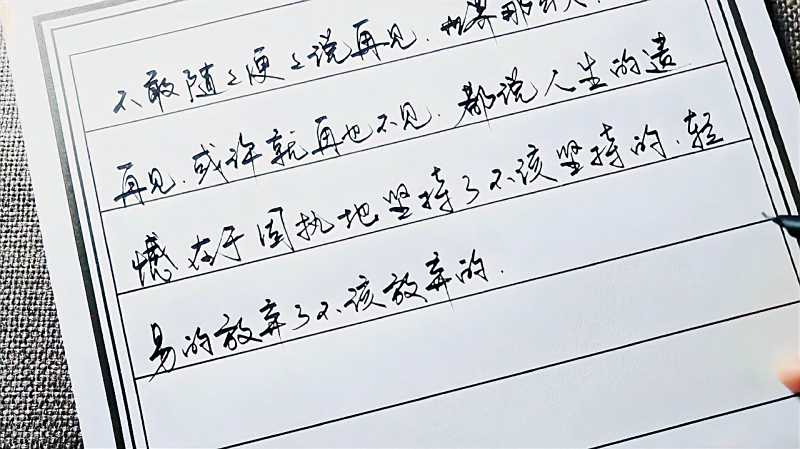 不敢随々便々说再见.世界那么大.
再见.或许就再也不见.都说人生的遗
憾在于固执地坚持了不该坚持的.轻
易的放弃了不该放弃的.